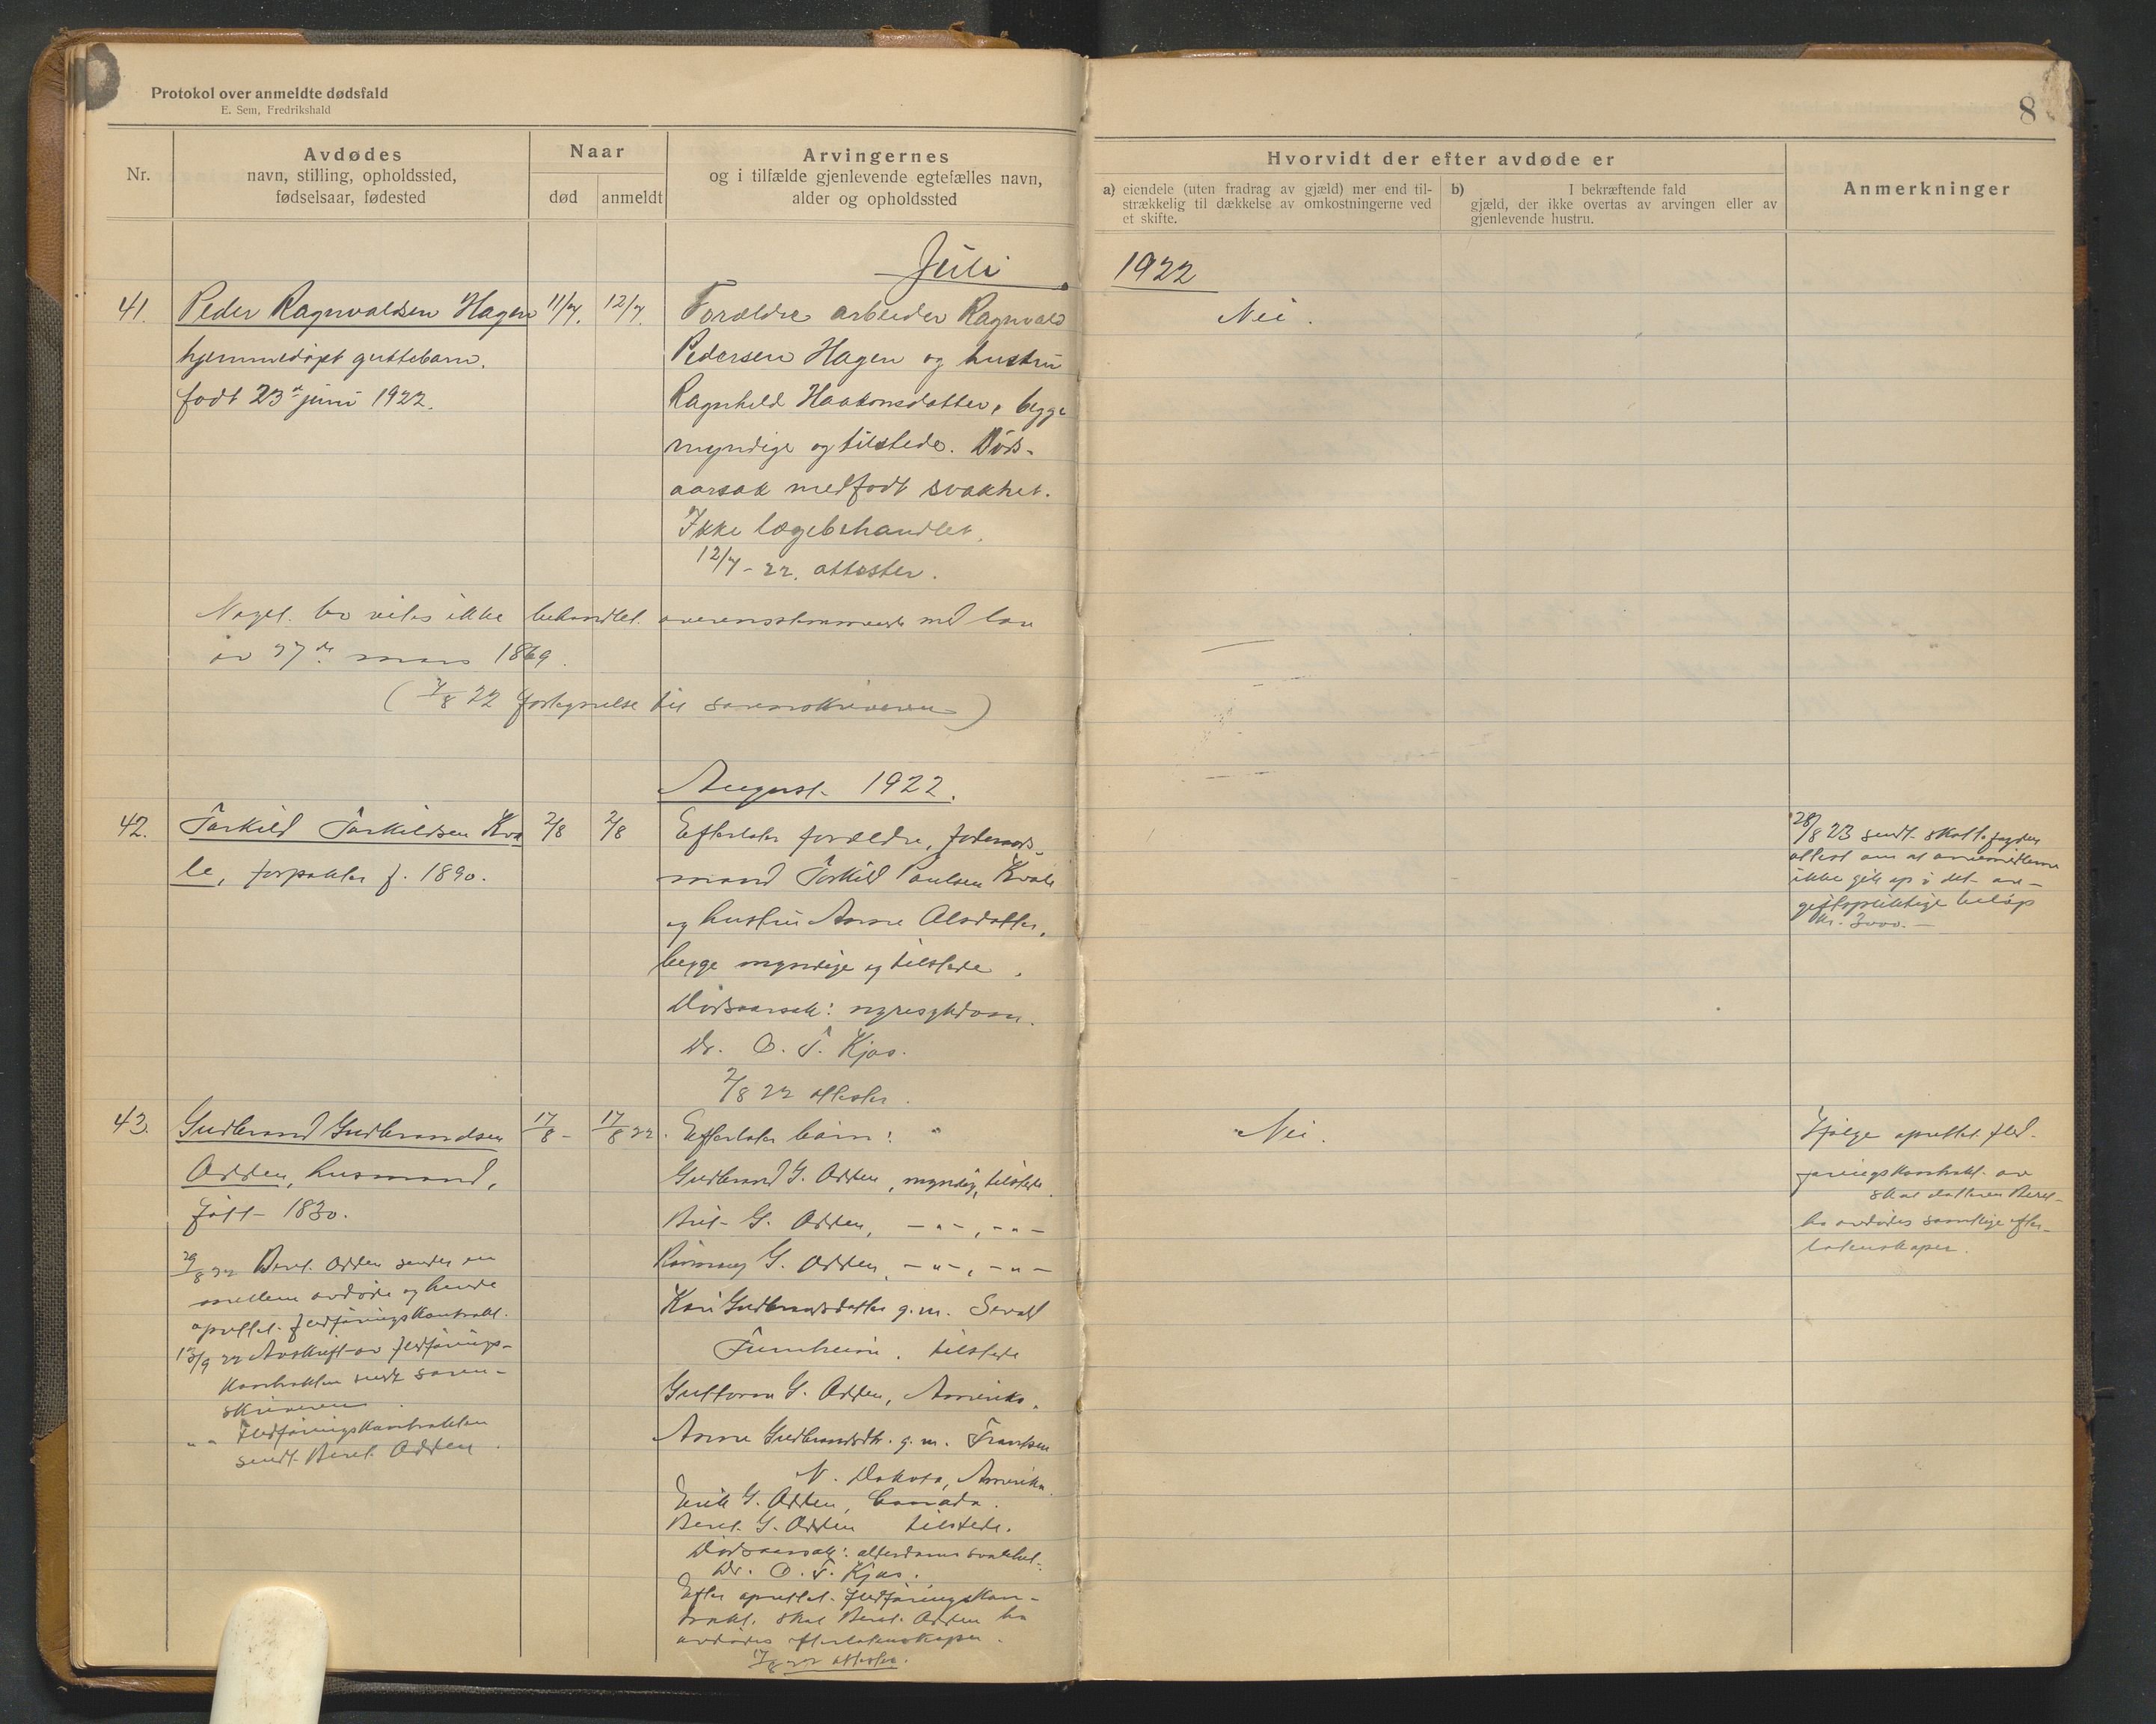 Protokol over anmeldte dødsfald
E. Sem, Fredrikshald
8
Nr.
Avdødes
navn, stilling, opholdssted,
fødselsaar, fødested
Naar
død
anmeldt
Arvingernes
og i tilfælde gjenlevende egtefælles navn,
alder og opholdssted
Hvorvidt der efter avdøde er
a) eiendele (uten fradrag av gjæld) mer end til-
strækkelig til dækkelse av omkostningerne ved
et skifte.
b) I bekræftende fald
gjæld, der ikke overtas av arvingen eller av
gjenlevende hustru.
Anmerkninger
Juli 1922
41. Peder Ragnvaldsen Hagen
hjemmedøpt guttebarn.
født 23de juni 1922.
11/7. 12/7.
Forældre arbeider Ragnvald
Pedersen Hagen og hustru
Ragnhild Haakonsdatter, begge
myndige og tilstede. Døds-
aarsak medfødt svakhet.
Ikke lægebehandlet.
12/7-22. attester.
Nei.
Noget bo vites ikke behandlet overensstemmende med lov
av 27de mars 1869.
(7/8 22 fortegnelse til sorenskriveren)
August 1922.
42. Torkild Torkildsen Kva
le, forpakter f. 1890.
2/8 2/8
Efterlater forældre,
mand Torkild Paulsen Kvale
og hustru Anne Olsdatter,
begge myndige og tilstede.
Dødsaarsak: nyresykdom.
Dr. O. T. Kjos.
2/8 22 attester.
28/8 23 sendt skattefogden
attest om at arvemidlerne
ikke gik op i det av-
giftspliktige beløp
kr. 3000.-
43. Gudbrand Gudbrandsen
Odden, husmand,
født 1830.
17/8- 17/8 22.
Efterlater barn:
Gudbrand G. Odden, myndig, tilstede.
Brit G. Odden, -"-, -"-
G. Odden, -"-, -"-
Kari Gudbrandsdatter g.m. Sevald
tilstede
Guttorm G. Odden, Amerika.
Anne Gudbrandsdtr. g.m. Frantsen
N. Dakota, Amerika.
Erik G. Odden, Canada.
Beret G. Odden tilstede.
Dødsaarsak: alderdoms svakhet.
Dr. O. T. Kjos.
Efter oprettet fledføringskon-
trakt skal Beret Odden ha
avdødes efterlatenskaper.
17/8 22 attester.
Nei.
Ifølge oprettet fled-
føringskontrakt av
skal datteren Beret
ha avdødes samtlige efter-
latenskaper.
29/8 22 Beret Odden sender en
mellem avdøde og hende
oprettet fledføringskontrakt.
13/9 22 Avskrift av fledførings-
kontrakten sendt soren-
skriveren.
" " Fledføringskontrakten
sendt Beret Odden.